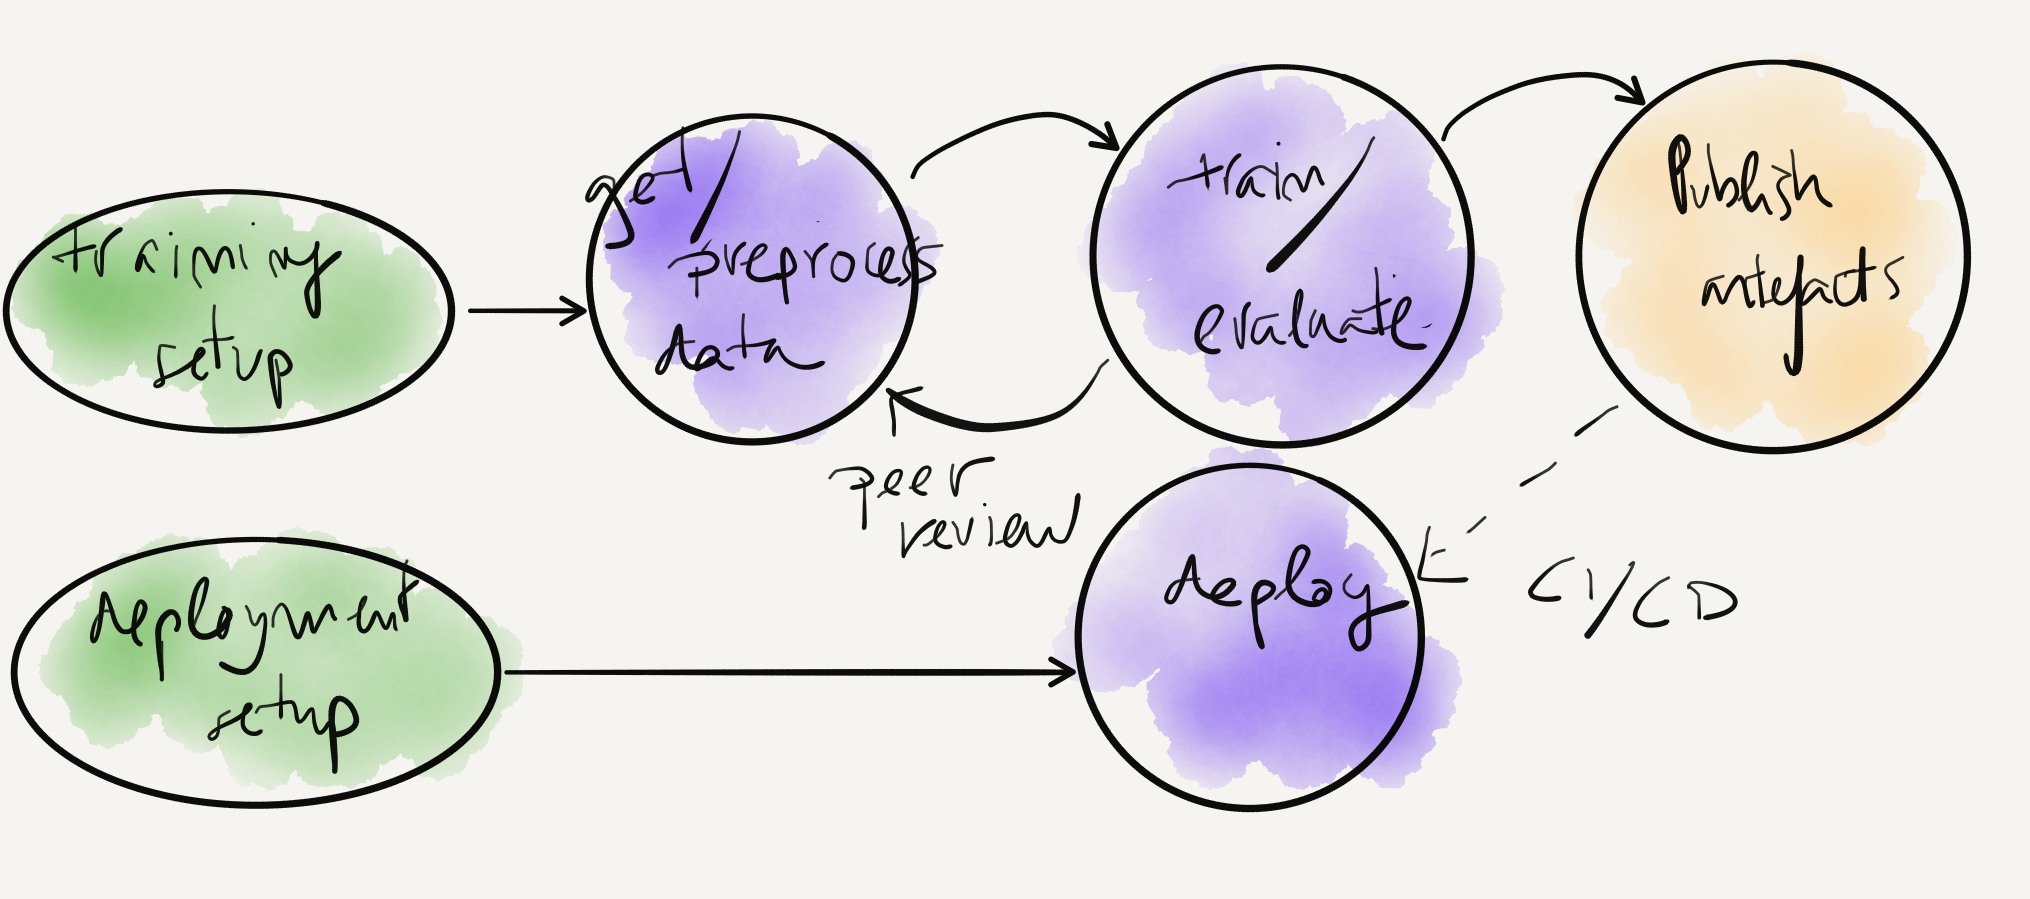 training
setup
get/
preprocess
data
train/
evaluate
Publish
artefacts
peer
review
deployment
setup
deploy
CI/CD